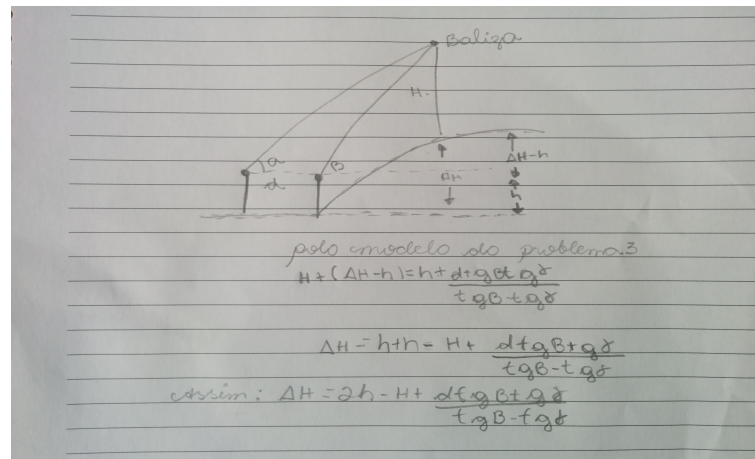 Baliza
H
α
β
d
ΔH
ΔH-h
h
pelo modelo do problema 3
H+(ΔH-h)=h+ d tgβ tgγ
tgβ-tgγ
ΔH=h+h-H+ d tgβ tgγ
tgβ-tgγ
Assim: ΔH=2h-H+ d tgβ tgγ
tgβ-tgγ